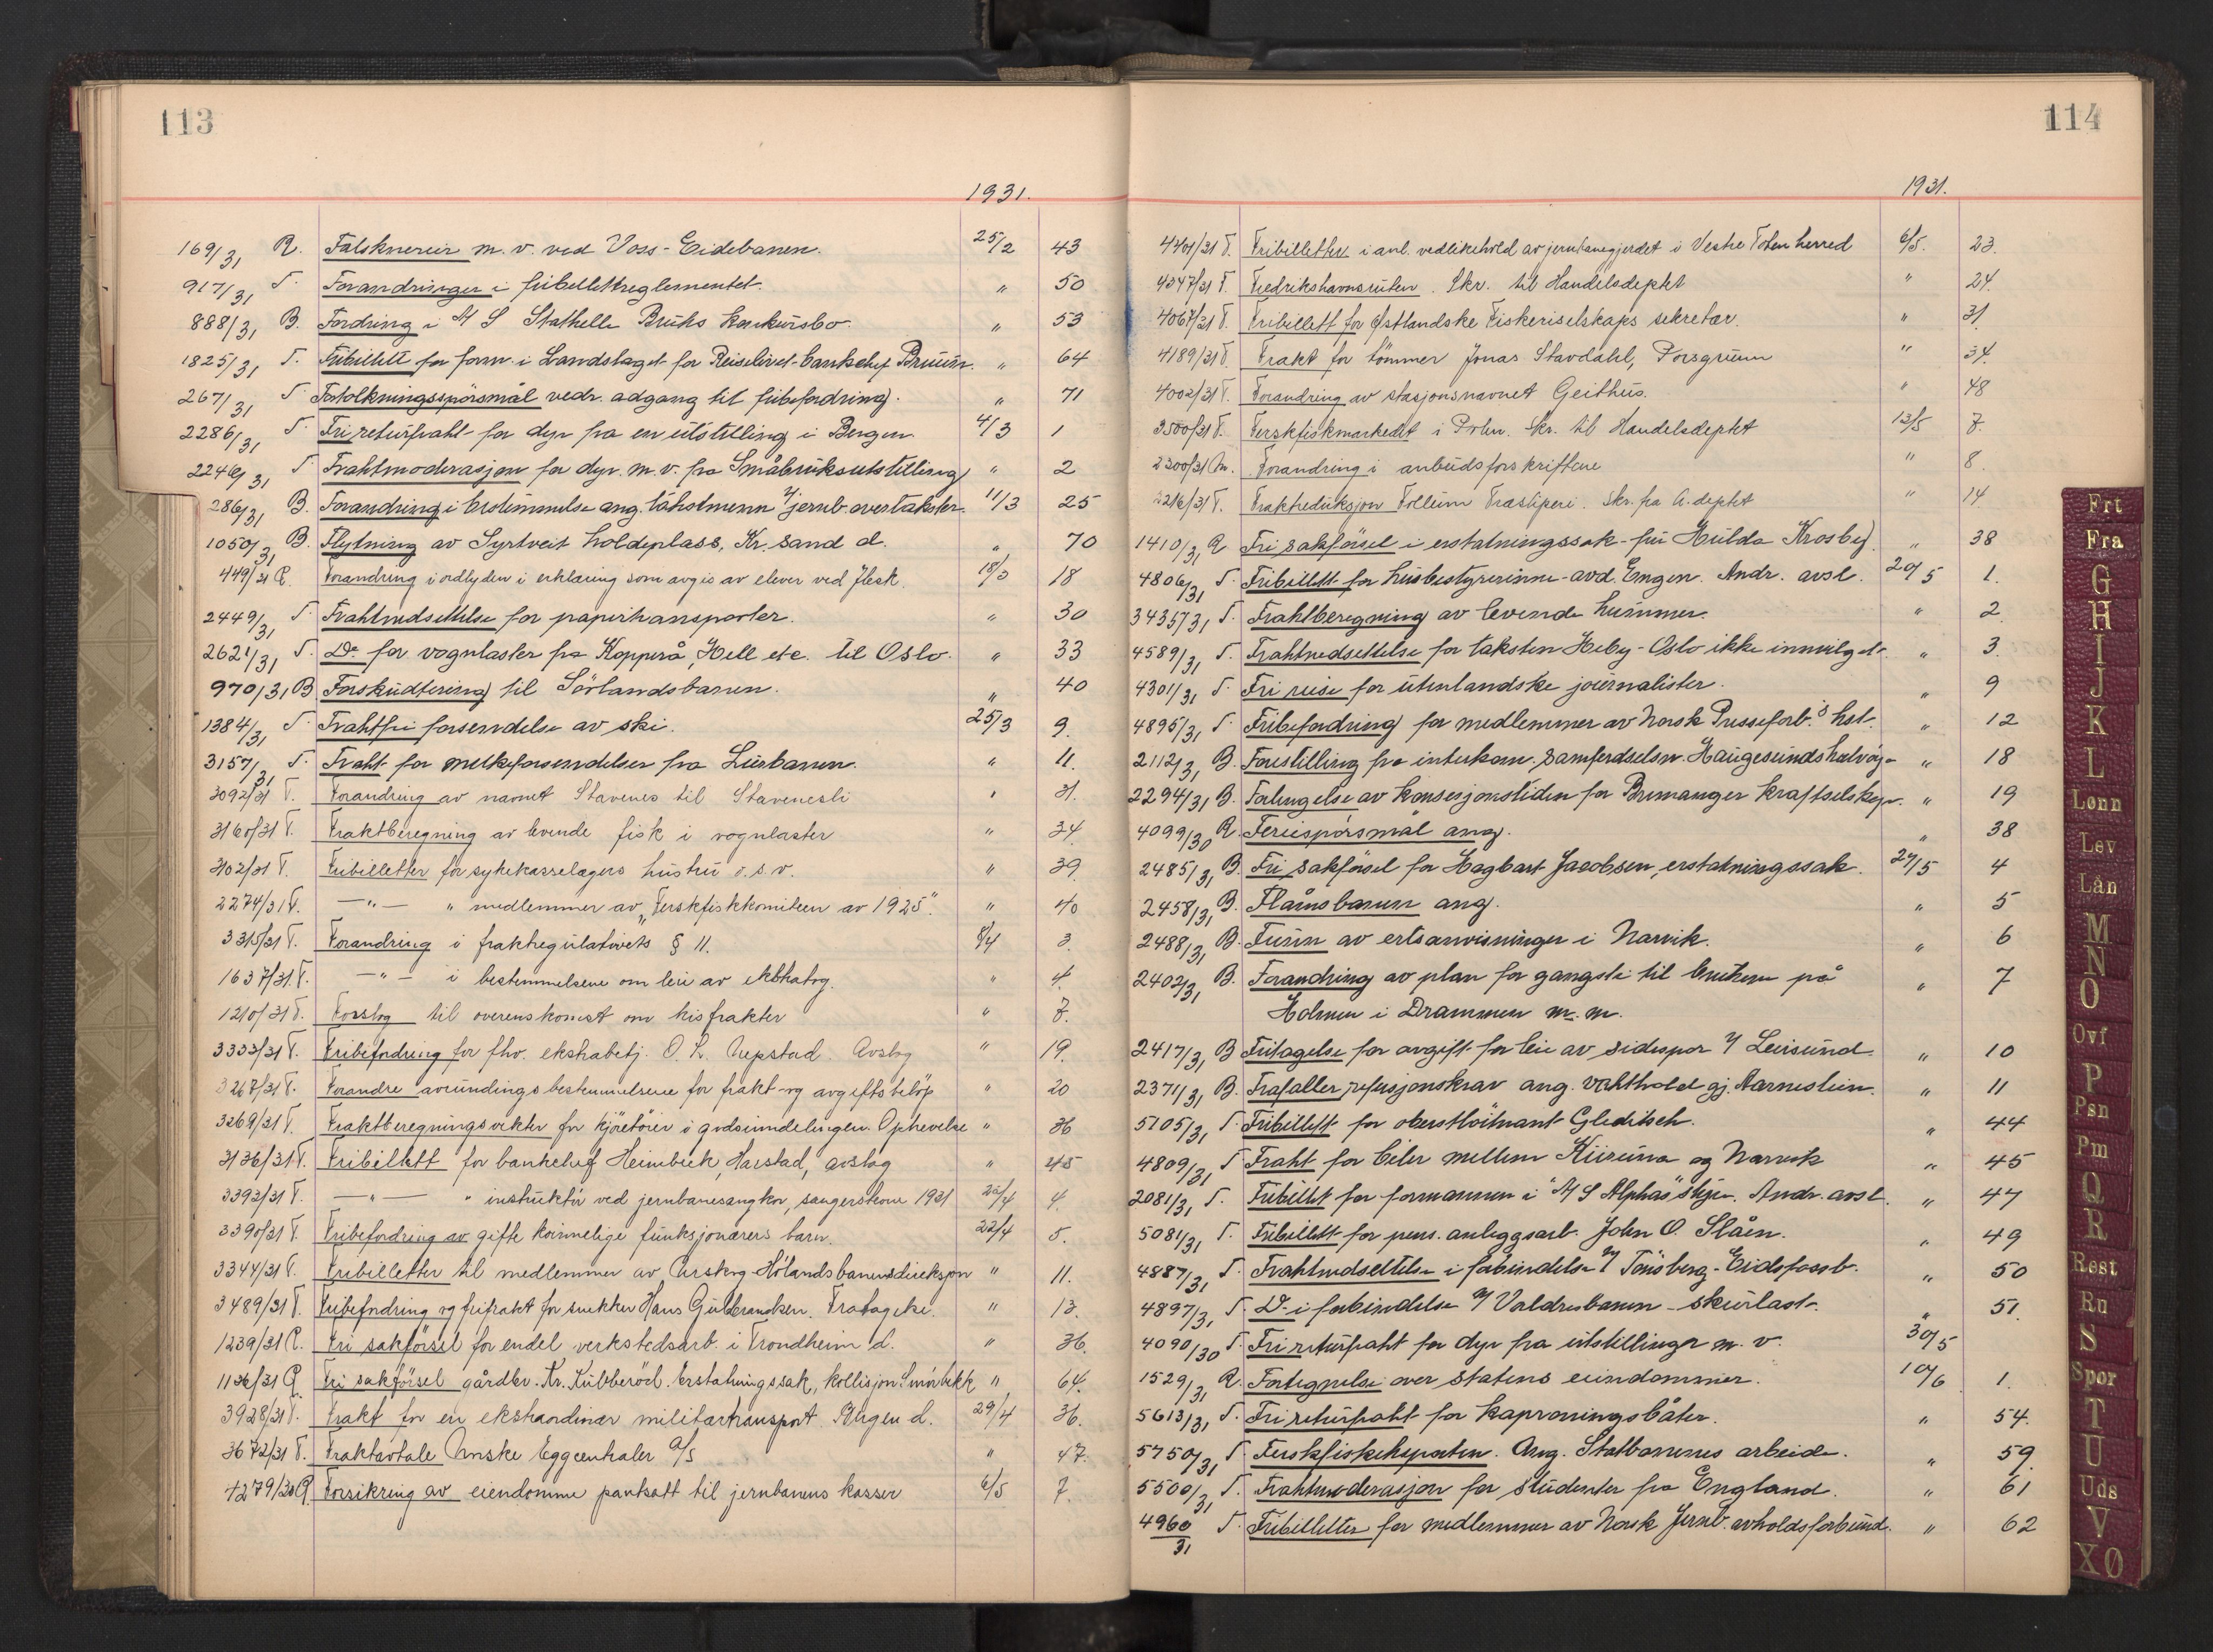 113
1931.
169/31 R. Falsknerier m. v. ved Voss-Eidebanen. 25/2 43
917/31 T. Forandringer i fribillettreglementet. " 50
888/31 B. Fordring i A/S Stathelle Bruks konkursbo. " 53
1825/31 T. Fribillett for form. i Landslaget for Reiselivet banksjef Bruun. " 64
267/31 T. Fortolkningsspörsmål vedr. adgang til fribefordring. " 71
2286/31 T. Fri returfrakt for dyr fra en utstilling i Bergen 4/3 1
2246/31 T. Fraktmoderasjon for dyr. m. v. fra Småbruksutstilling " 2
286/31 B. Forandring i bestemmelse ang. takstmenn v/ jernb. overtakster. 11/3 25
1050/31 B. Flytning av Syrtveit holdeplass, Kr. sand d. " 70
449/31 R. Forandring i ordlyden i erklæring som avgis av elever ved Jbesk. 18/3 18
2449/31 T. Fraktnedsettelse for papirtransporter. " 30
2621/31 T. Do for vognlaster fra Kopperå, Hell etc. til Oslo. " 33
970/31 B Forskuttering til Sörlandsbanen. " 40
1384/31 T. Fraktfri forsendelse av ski. 25/3 9.
3157/31 T. Frakt for melkeforsendelser fra Lierbanen. " 11.
3092/31 T. Forandring av navnet Stavenes til Stavenesli " 31.
3160/31 T. Fraktberegning av levende fisk i vognlaster " 34.
3102/31 T. Fribilletter for sykekasselægers hustru o.s.v. " 39.
2274/31 T. —"— " medlemmer av "Ferskfiskkomiteen av 1925". " 40
3315/31 T. Forandring i fraktregulativets § 11. 8/4 3.
1637/31 T. —"— i bestemmelsene om leie av ekstratog. " 4.
1210/31 T. Forslag til overenskomst om kisfrakter " 7.
3333/31 T. Fribefordring for fhv. ekstrabetj. O. L. Nupstad. Avslag " 19.
3267/31 T. Forandre avrundingsbestemmelsene for frakt- og avgiftsbeløp " 20
3269/31 T. Fraktberegningsvekter for kjøretøier i godsinndelingen. Ophevelse " 36
3136/31 T. Fribillett for banksjef Heimbeck, Harstad, avslag " 45
3392/31 T. —"— " instruktør ved jernbanesangkor, sangerstevne 1931 22/4 4.
3390/31 T. Fribefordring av gifte kvinnelige funksjonærers barn. 22/4 5.
3344/31 T. Fribilletter til medlemmer av Aurskog-Hølandsbanens direksjon " 11.
3489/31 T. Fribefordring og frifrakt for snekker Hans Gulbrandsen. " 13.
1239/31 R. Fri sakførsel for endel verkstedsarb. i Trondheim d. " 36.
1136/31 R Fri sakførsel gårdbr. Kr. Kubberød. Erstatningssak, kollisjon Smörbekk " 64.
3928/31 T. Frakt for en ekstraordinær militærtransport. Bergen d. 29/4 36.
3672/31 T. Fraktavtale Norske Eggcentraler A/S " 47.
4279/30 R. Forsikring av eiendomme pantsatt til jernbanens kasser 6/5 7.
114
1931.
4401/31 T. Fribilletter i anl. vedlikehold av jernbanegjerdet i Vestre Toten herred 6/5. 23.
4347/31 T. Fredrikshavnsruten. Skr. til Handelsdeptet " 24.
4067/31 T. Fribillett for Østlandske Fiskeriselskaps sekretær. " 31
4189/31 T. Frakt for tömmer Jonas Stavdahl, Porsgrunn " 34.
4002/31 T. Forandring av stasjonsnavnet Geithus. " 48
3500/31 T. Ferskfiskmarkedet i Skr. til Handelsdeptet 13/5 7.
2300/31 M. Forandring i anbudsforskriftene " 8.
2216/31 T. Fraktreduksjon Follum Træsliperi. Skr. fra A. deptet " 14.
1410/31 R Fri sakförsel i erstatningssak fru Hulda Krosby. " 38
4806/31 T. Fribillett for husbestyrerinne avd. Engen. Andr. avsl. 20/5 1.
3435/31 T. Fraktberegning av levende hummer. " 2.
4589/31 T. Fraktnedsettelse for taksten Heby-Oslo ikke innvilget. " 3.
4301/31 T. Fri reise for utenlandske journalister. " 9
4895/31 T. Fribefordring for medlemmer av Norsk Presseforb.s hst. " 12
2112/31 B. Forestilling fra interkom. samferdselsn. Haugesundshalvöy " 18
2294/31 B. Forlengelse av konsesjonstiden for Bremanger kraftselskap. " 19
4099/30 R. Feriespörsmål ang. " 38
2485/31 B. Fri sakförsel for Hagbart Jacobsen, erstatningssak. 27/5 4
2458/31 B. Flåmsbanen ang. " 5
2488/31 B. Funn av ertsanvisninger i Narvik. " 6
2402/31 B. Forandring av plan for gangsti til bruken på " 7
Holmen i Drammen m. m.
2417/31 B Fritagelse for avgift for leie av sidespor v/ Leirsund. " 10
2371/31 B. Frafaller refusjonskrav ang. vakthold gj. Aarnestein. " 11
5105/31 T. Fribillett for oberstlöitnant Gleditsch. " 44
4809/31 T Frakt for biler mellem Kiruna og Narvik " 45
2081/31 T. Fribillet for formannen i "A/S Alphas" styre. Andr. avsl. " 47
5081/31 T. Fribillett for pens. anleggsarb. John O. Slåen. " 49
4887/31 T. Fraktnedsettelse i forbindelse m/ Tönsberg-Eidsfossb. " 50
4897/31 T. Do i forbindelse m/ Valdresbanen - skurlast. " 51.
4090/30 T. Fri returfrakt for dyr fra utstillinger m. v. 30/5
1529/31 R. Fortegnelse over statens eiendommer. 10/6 1.
5613/31 T. Fri returfrakt for kaproningsbåter. " 54.
5750/31 T. Ferskfiskeksporten. Ang. Statbanenes arbeide. " 59.
5500/31 T. Fraktmoderasjon for studenter fra England. " 61
4960/31 T. Fribilletter for medlemmer av Norsk Jernb. avholdsforbund. " 62
Frt
Fra
G
H
I
J
K
L
Lønn
Lev
Lån
M
N
O
Ovf
P
Psn
Pm
Q
R
Rest
Ru
S
Spor
T
U
Uds
V
XØ